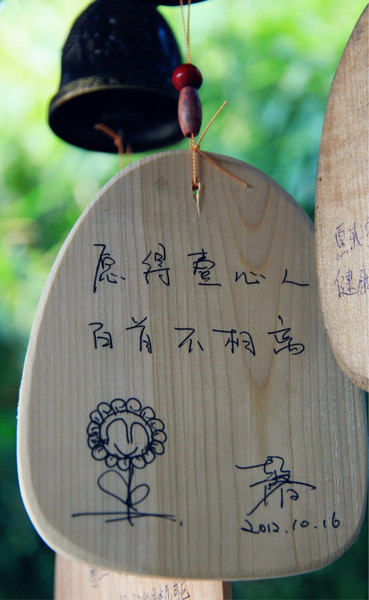 愿得壹心人
百首不相离
2012.10.16
健康